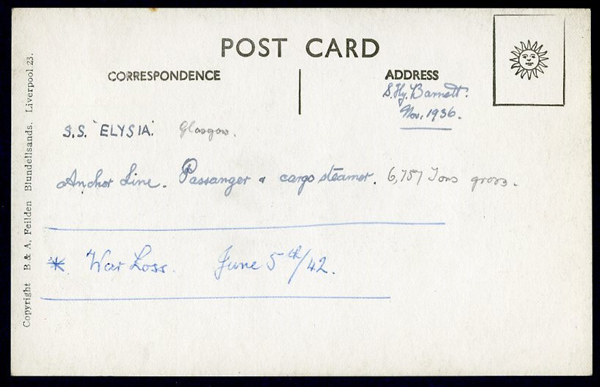 POST CARD
CORRESPONDENCE
ADDRESS
S. Hy. Barnett.
Nov. 1936.
S.S. "ELYSIA". Glasgow.
Anchor Line. Passanger & cargo steamer. 6,757 Tons gross.
* War Loss. June 5th/42.
Copyright B. & A. Feilden Blundellsands. Liverpool 23.